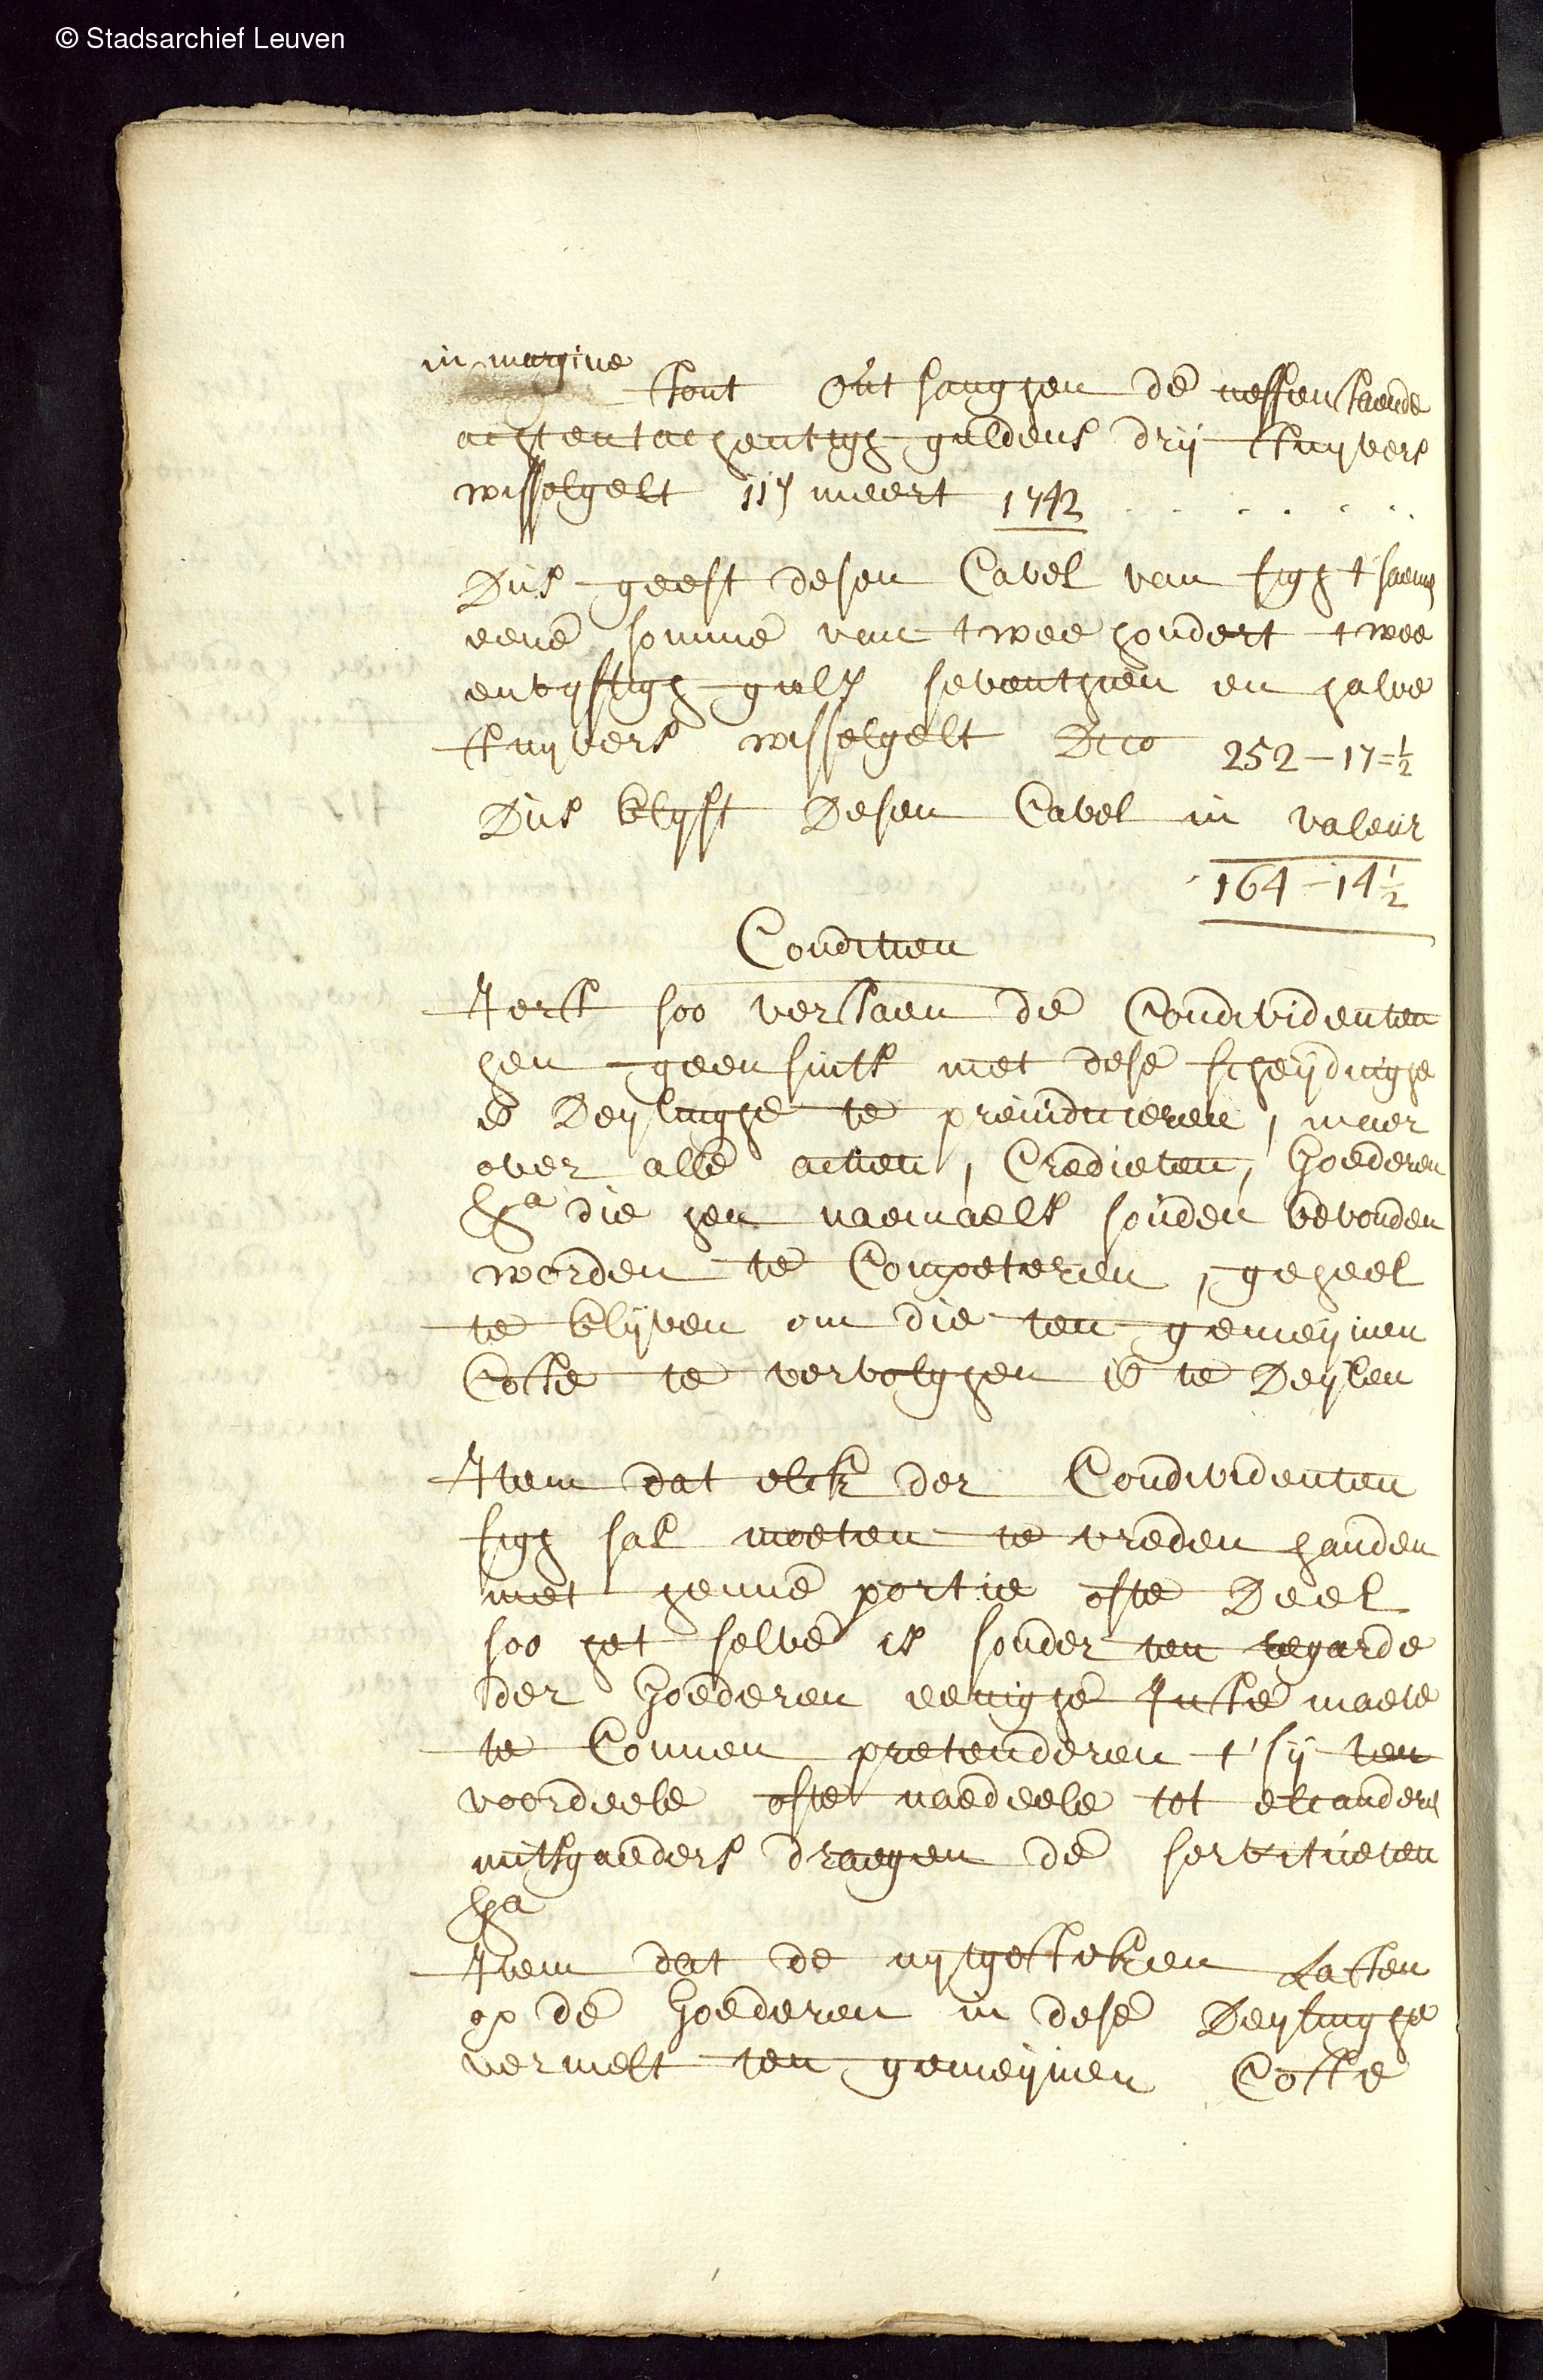 © Stadsarchief Leuven
in margine
stont ontfanghen de neffenstaende
achtentachentigh guldens drij stuyvers
wisselgelt 11 meert 1742
Dus geeft desen Cavel van sigh t'saemen
eene somme van twee hondert twee
envyftigh guls seventhien en halve
stuyvers wisselgelt Dico 252-17=½
Dus blyft Desen Cavel in valeur
164-14½
Conditien
Ierst soo verstaen de Condividenten
hen geensints met dese scheijdinghe
ende Deylinghe te preiudicieren, maer
over alle actien, Credieten, Goederen
&a die hen naemaels souden bevonden
worden te Competeren, geheel
te blijven om die ten gemeijnen
Coste te vervolghen ende te Deylen
Item dat elck der Condividenten
sigh sal moeten te vreden handen
met henne portie ofte Deel
soo het selve is sonder ten regarde
der Goederen eenighe Juste maete
te Connen pretenderen t'sij ten
voordeele ofte naedeele tot elcanders
mitsgaeders draegen de servitueten
&a
Item dat de uytgestoken Lasten
op de Goederen in dese Deylinghe
vermelt ten gemeijnen Coste